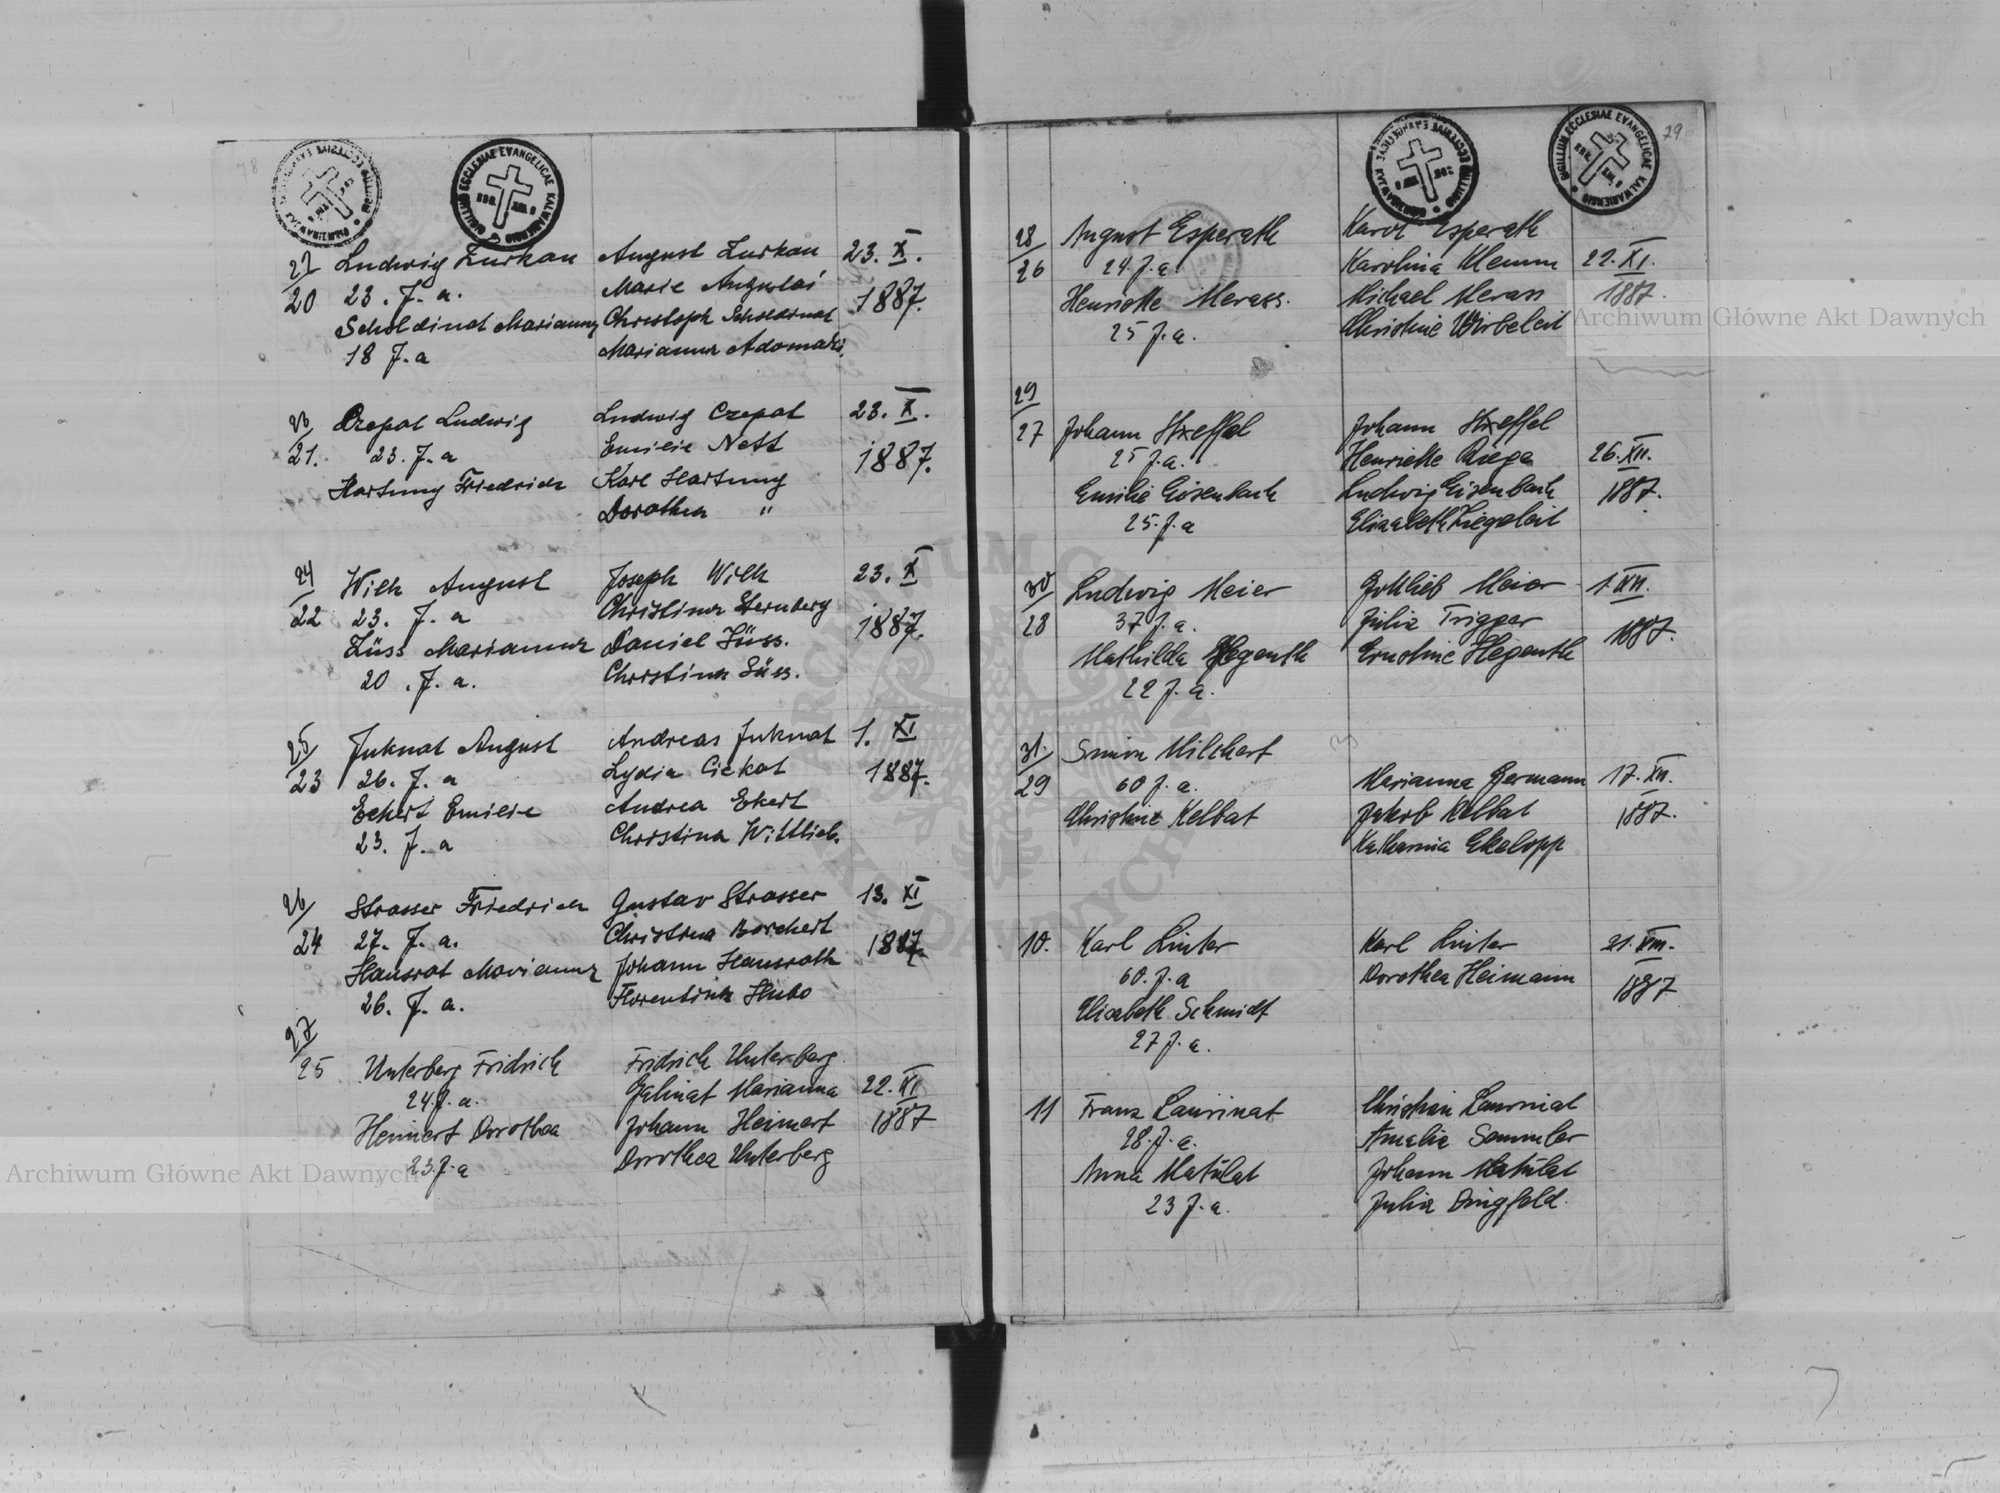 78
SIGILLUM ECCLESIAE EVANGELICAE KALWARIENSIS
22/20 Ludwig Zurkan August Zurkau 23. X.
23. J. a. Marie
Scholdinat Marianna Christoph Scholdinat 1887.
18 J. a Marianna
23/21. Czepat Ludwig Ludwig Czepat 23. X.
23. J. a Emilie Nett
Hartung Friedrich Karl Hartung 1887.
Dorothea "
24/22 Wilk August Joseph Wilk 23. X
23. J. a Christina Sternberg
Züss Marianna Daniel Züss. 1887.
20. J. a. Christina Süss.
25/23 Juknat August Andreas Juknat 1. XI
26. J. a Lydia 1887.
Eckert Emilie Andrea Ekert
23. J. a Christina Wittlieb.
26/24 Strasser Friedrich Gustav Strasser 13. XI
27. J. a. Christina Borchert
Hausrat Marianna Johann Hausrath 1887.
26. J. a. Florentina
27/25 Unterberg Fridrich Fridrich Unterberg
24. J. a. Galinat Marianna 22. XI
Heinert Dorothea Johann Heinert 1887
23. J. a Dorothea Unterberg
79
SIGILLUM ECCLESIAE EVANGELICAE KALWARIENSIS
28/26 August Esperath Karol Esperath
24. J. a. Karolina Klemm 22. XI.
Henriette Merass. Michael Merass 1887.
25 J. a. Christine Wirbeleit
29/27 Johann Streffel Johann Streffel
25 J. a. Henriette 26. XII.
Emilie Eisenbach Ludwig Eisenbach 1887.
25. J. a Elisabeth Ziegeleit
30/28 Ludwig Meier Gottlieb Meier 1. XII.
37 J. a. Julia Trigger
Mathilda Hegenth Ernstine Hegenth 1887.
22 J. a.
31./29 Simon Milchert
60 J. a. Marianna Germann 17. XII.
Christine Kelbat Jakob Kelbat 1887.
Katharina
10. Karl Linter Karl Linter 21. VIII.
60. J. a Dorothea Heimann
Elisabeth Schmidt 1887
27 J. a.
11 Franz Laurinat Christian Laurniat
28. J. a. Amalie Sammler
Anna Matulat Johann Matulat
23 J. a. Julia Dingfeld.
Archiwum Główne Akt Dawnych
Archiwum Główne Akt Dawnych
ARCHIWUM GŁÓWNE AKT DAWNYCH